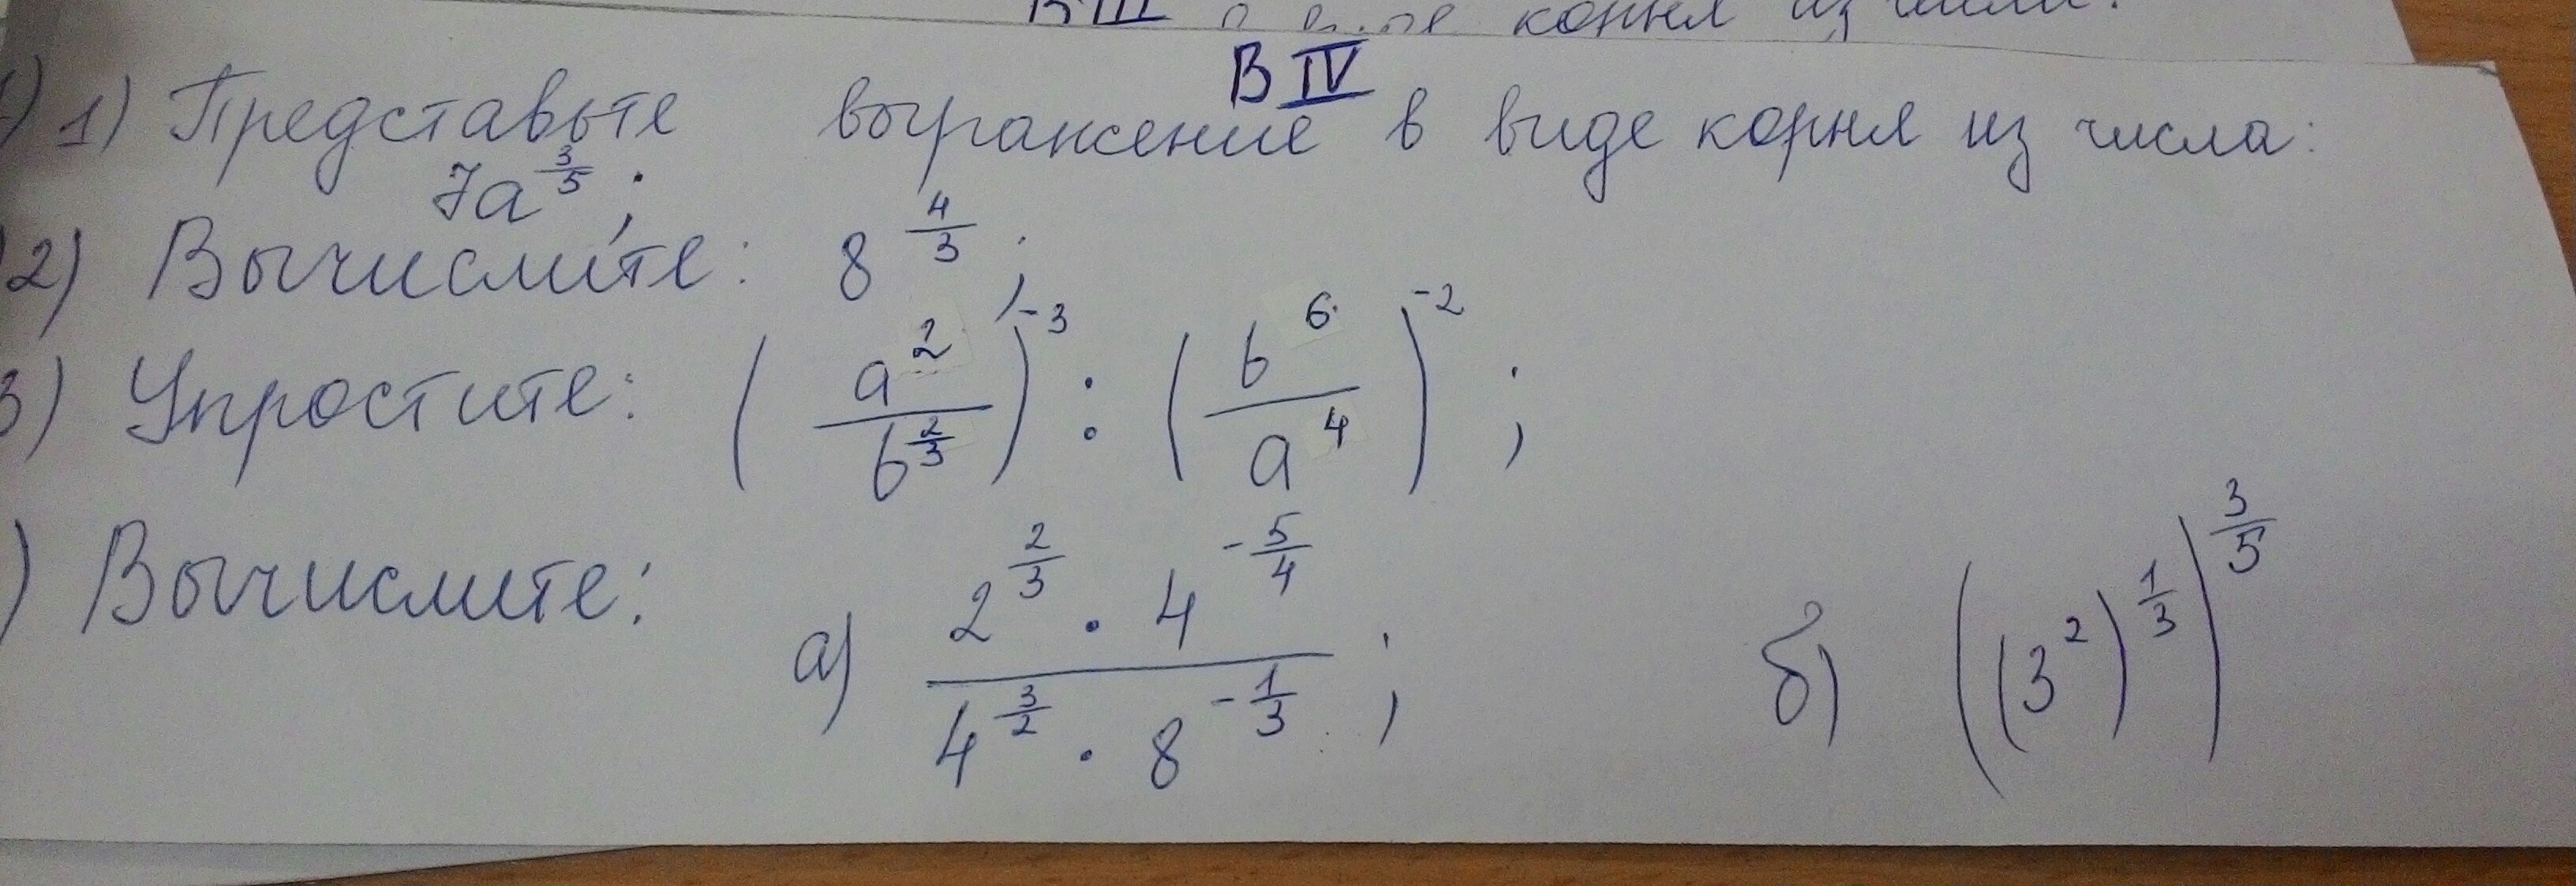 ВIII в виде корня из числа:
В IV
1) Представьте выражение в виде корня из числа:
7a^{3/5};
2) Вычислите: 8^{4/3};
3) Упростите: (a^2/b^{2/3})^{-3} : (b^6/a^4)^{-2};
) Вычислите:
а) (2^{2/3} · 4^{-5/4})/(4^{3/2} · 8^{-1/3}); б) ((3^2)^{1/3})^{3/5}